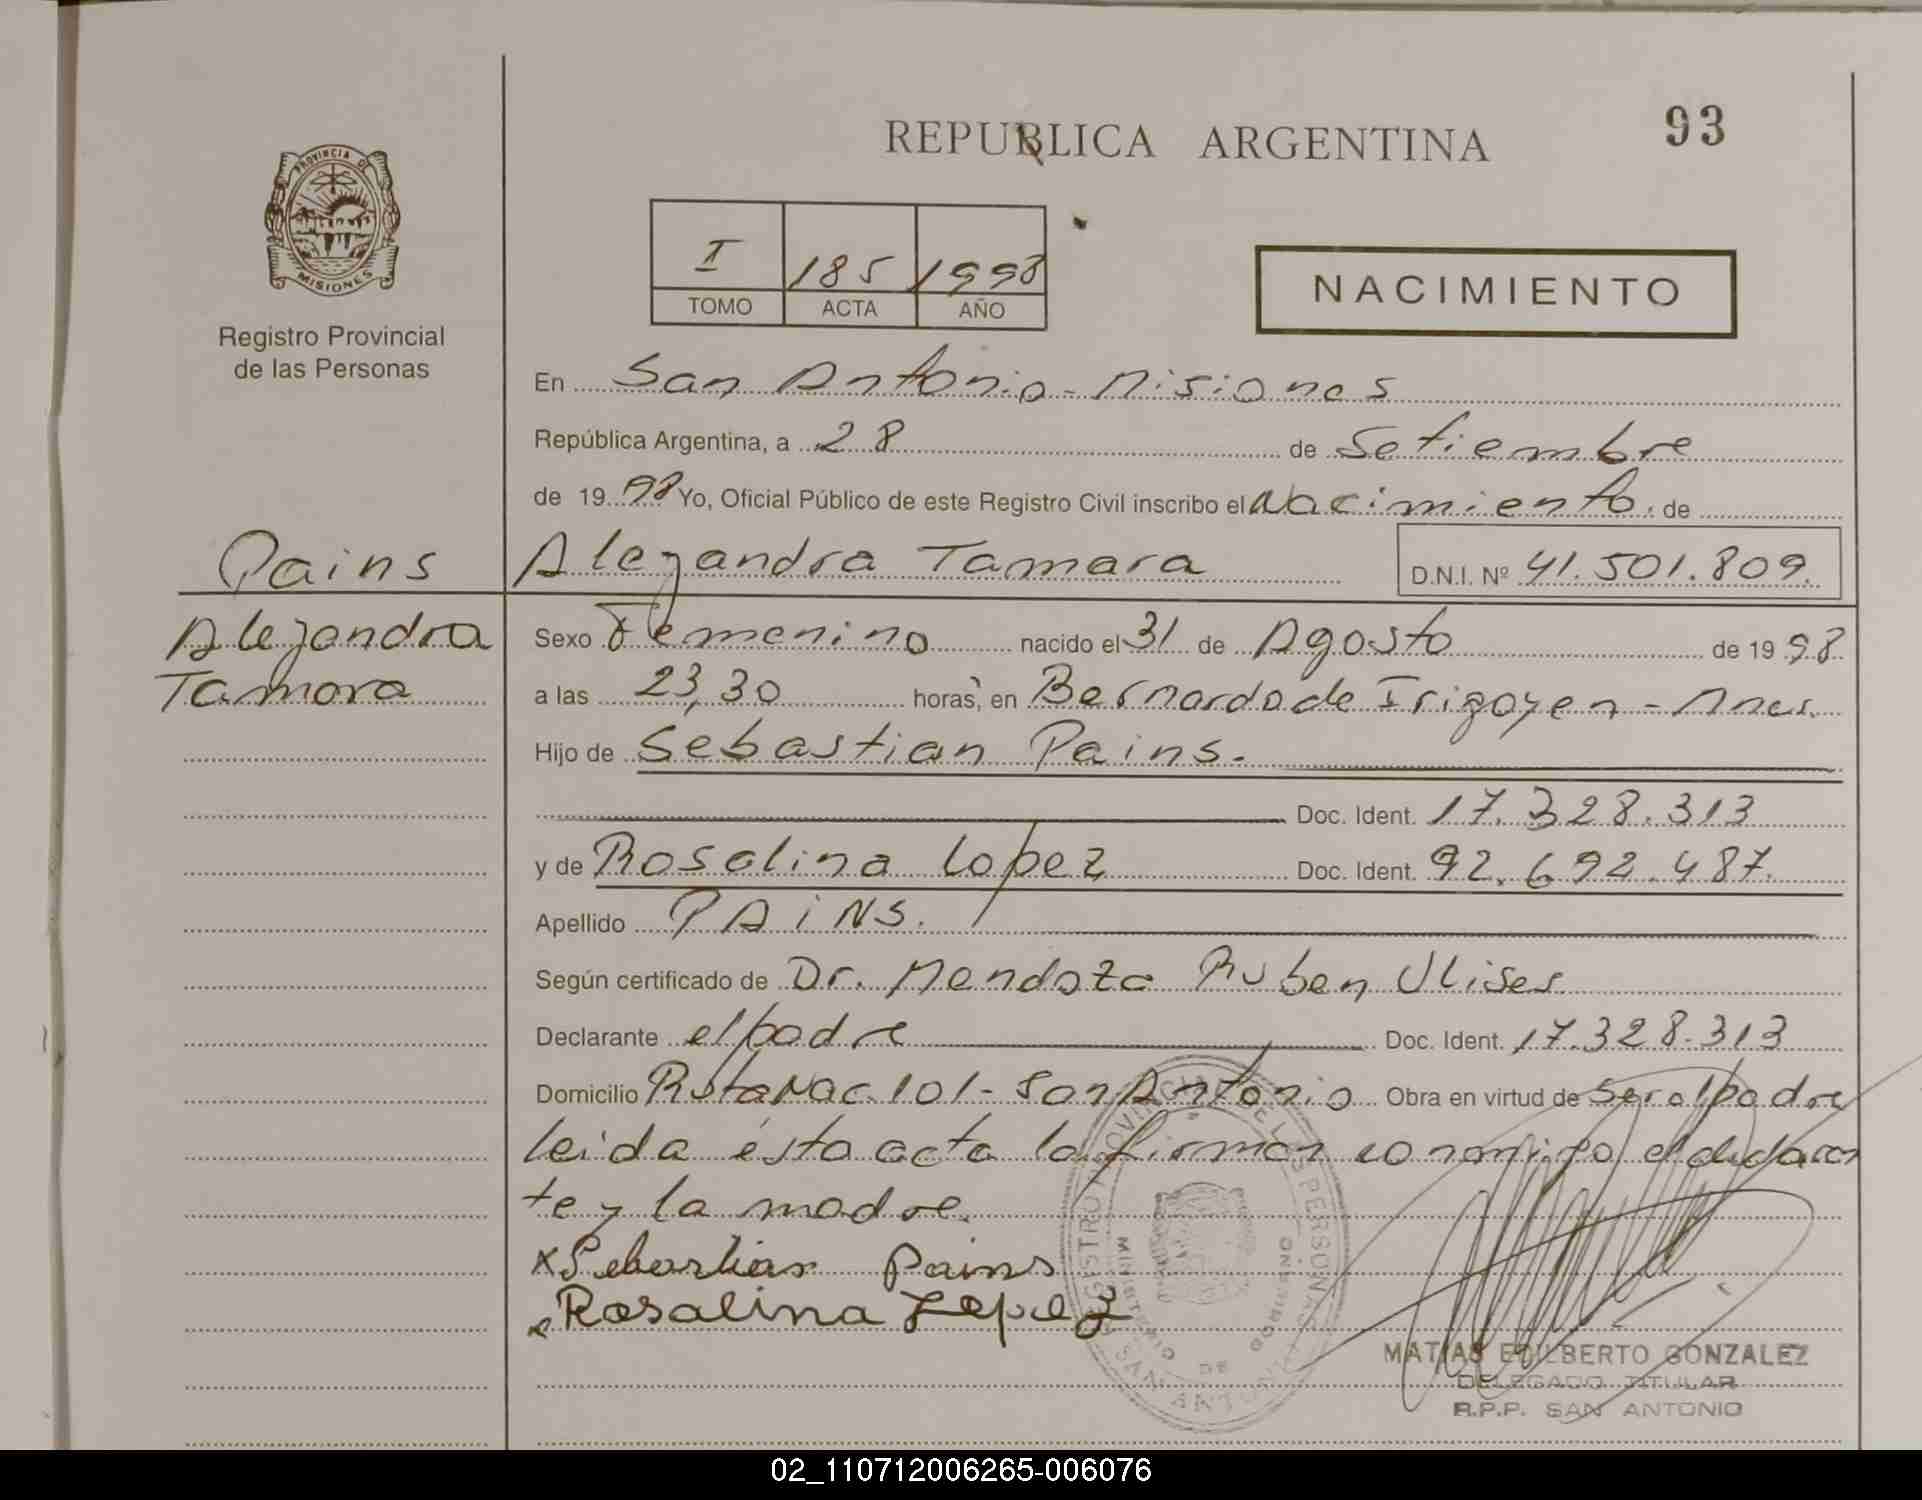 REPUBLICA ARGENTINA
93
PROVINCIA DE
MISIONES
Registro Provincial
de las Personas
I 185 1998
TOMO ACTA AÑO
NACIMIENTO
En San Antonio - Misiones
República Argentina, a 28 de Setiembre
de 1998 Yo, Oficial Público de este Registro Civil inscribo el Nacimiento de
Pains Alejandra Tamara D.N.I. Nº 41.501.809.
Alejandra
Tamara
Sexo Femenino nacido el 31 de Agosto de 1998
a las 23,30 horas, en Bernardo de Irigoyen - Mnes.
Hijo de Sebastian Pains.
Doc. Ident. 17.328.313
y de Rosalina Lopez Doc. Ident. 92.692.487.
Apellido PAiNS.
Según certificado de Dr. Mendoza Ruben Ulises
Declarante el padre Doc. Ident. 17.328.313
Domicilio Ruta Nac. 101 - San Antonio Obra en virtud de ser el padre
leida ésta acta la firman conmigo el declaran
te y la madre.
x Sebastian Pains
x Rosalina Lopez
REGISTRO PROVINCIAL DE LAS PERSONAS
MINISTERIO DE GOBIERNO
SAN ANTONIO
MATIAS EDILBERTO GONZALEZ
DELEGADO TITULAR
R.P.P. SAN ANTONIO
02_110712006265-006076